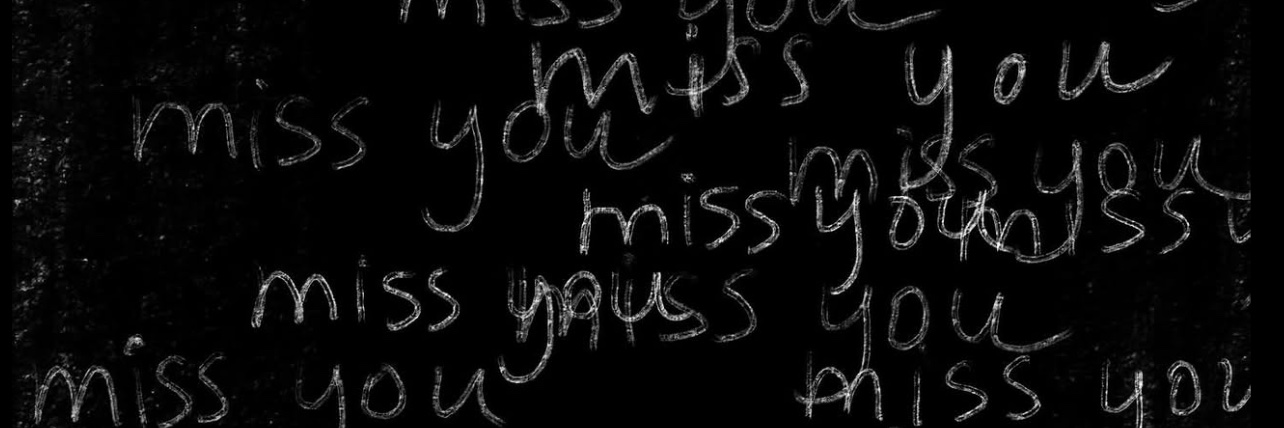 miss you
miss you
miss you
miss you
miss you
miss
miss you
miss you
miss you
miss you